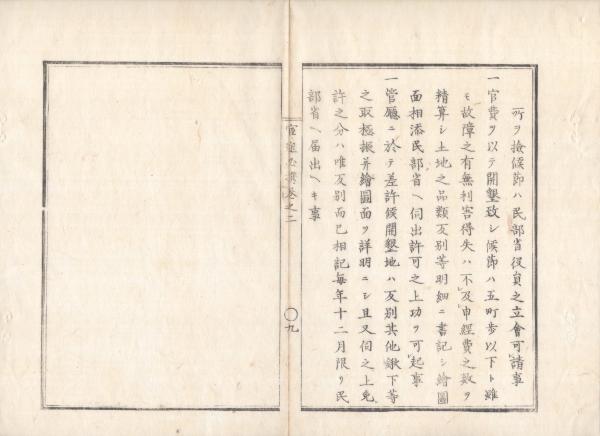 所ヲ撿候節ハ民部省役員之立會可請事
一官費ヲ以テ開墾致シ候節ハ五町歩以下ト雖
モ故障之有無利害得失ハ不及申經費之数ヲ
精算シ土地之品類反別等明細ニ書記シ繪圖
面相添民部省ヘ伺出許可之上功ヲ可起事
一管廳ニ於テ差許候開墾地ハ反別其他鍬下等
之取極振并繪圖面ヲ詳明ニシ且又伺之上免
許之分ハ唯反別而已相記毎年十二月限リ民
部省ヘ届出ヘキ事
必携巻之二
〇九